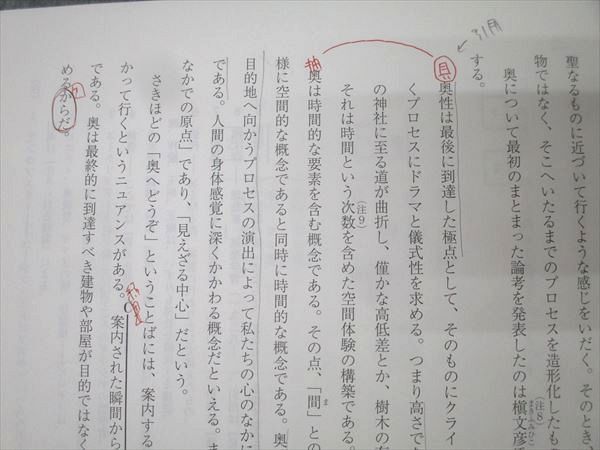 聖なるものに近づいて行くような感じをいだく。そのとき、
物ではなく、そこへいたるまでのプロセスを造形化したも
(注8)
奥について最初のまとまった論考を発表したのは槇文彦
まきふみひこ
する。
引用
具
奥性は最後に到達した極点として、そのものにクライ
くプロセスにドラマと儀式性を求める。つまり高さで
の神社に至る道が曲折し、僅かな高低差とか、樹木の
それは時間という次数を含めた空間体験の構築である。
(注9)
抽
奥は時間的な要素を含む概念である。その点、「間」との
ま
様に空間的な概念であると同時に時間的な概念である。奥
目的地へ向かうプロセスの演出によって私たちの心のなかに
である。人間の身体感覚に深くかかわる概念だといえる。
なかでの原点」であり、「見えざる中心」だという。
さきほどの「奥へどうぞ」ということばには、案内する
かって行くというニュアンスがある。C案内された瞬間から
である。奥は最終的に到達すべき建物や部屋が目的ではなく
めるからだ。